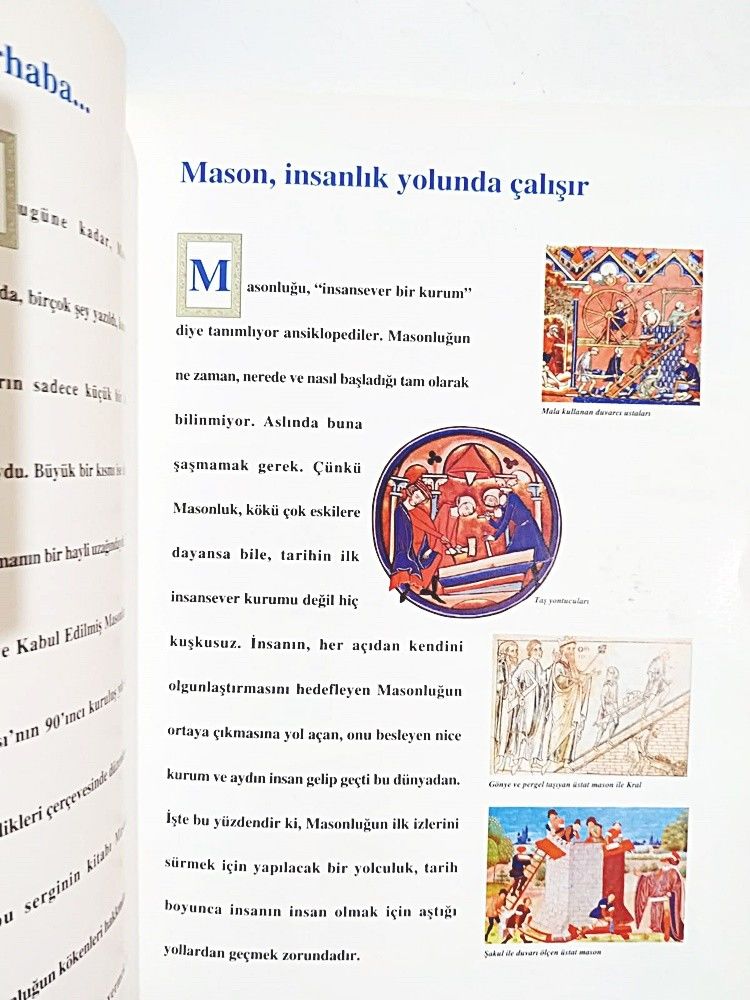 rhaba...
ugüne kadar,
da, birçok şey yazıldı,
rın sadece küçük bir
du. Büyük bir kısmı ise
manın bir hayli uzağında
e Kabul Edilmiş
sı'nın 90'ıncı kuruluş
likleri çerçevesinde
bu serginin kitabı
nluğun kökenleri
Mason, insanlık yolunda çalışır
Masonluğu, “insansever bir kurum”
diye tanımlıyor ansiklopediler. Masonluğun
ne zaman, nerede ve nasıl başladığı tam olarak
bilinmiyor. Aslında buna
şaşmamak gerek. Çünkü
Masonluk, kökü çok eskilere
dayansa bile, tarihin ilk
insansever kurumu değil hiç
kuşkusuz. İnsanın, her açıdan kendini
olgunlaştırmasını hedefleyen Masonluğun
ortaya çıkmasına yol açan, onu besleyen nice
kurum ve aydın insan gelip geçti bu dünyadan.
İşte bu yüzdendir ki, Masonluğun ilk izlerini
sürmek için yapılacak bir yolculuk, tarih
boyunca insanın insan olmak için aştığı
yollardan geçmek zorundadır.
Mala kullanan duvarcı ustaları
Taş yontucuları
Gönye ve pergel taşıyan üstat mason ile Kral
Şakul ile duvarı ölçen üstat mason